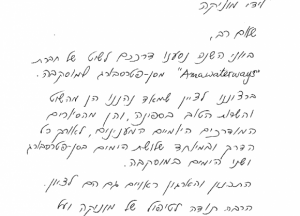 וידי מוניקה
שלום רב,
ביוני השנה נסענו דרככם לשוט של חברת
"Amawaterways" מסן-פטרסבורג למוסקבה.
ברצוננו לציין שמאד נהננו הן מהשוט
והשרות הטוב בספינה, והן מהסיורים
המודרכים היומים המענינים, לאורך כל
הדרך ובמיוחד שלושת הימים בסן-פטרסבורג
ושני הימים במוסקבה.
התכנון והארגון ראויים גם הם לציון.
הרבה תודה לטיפול של מוניקה ועל